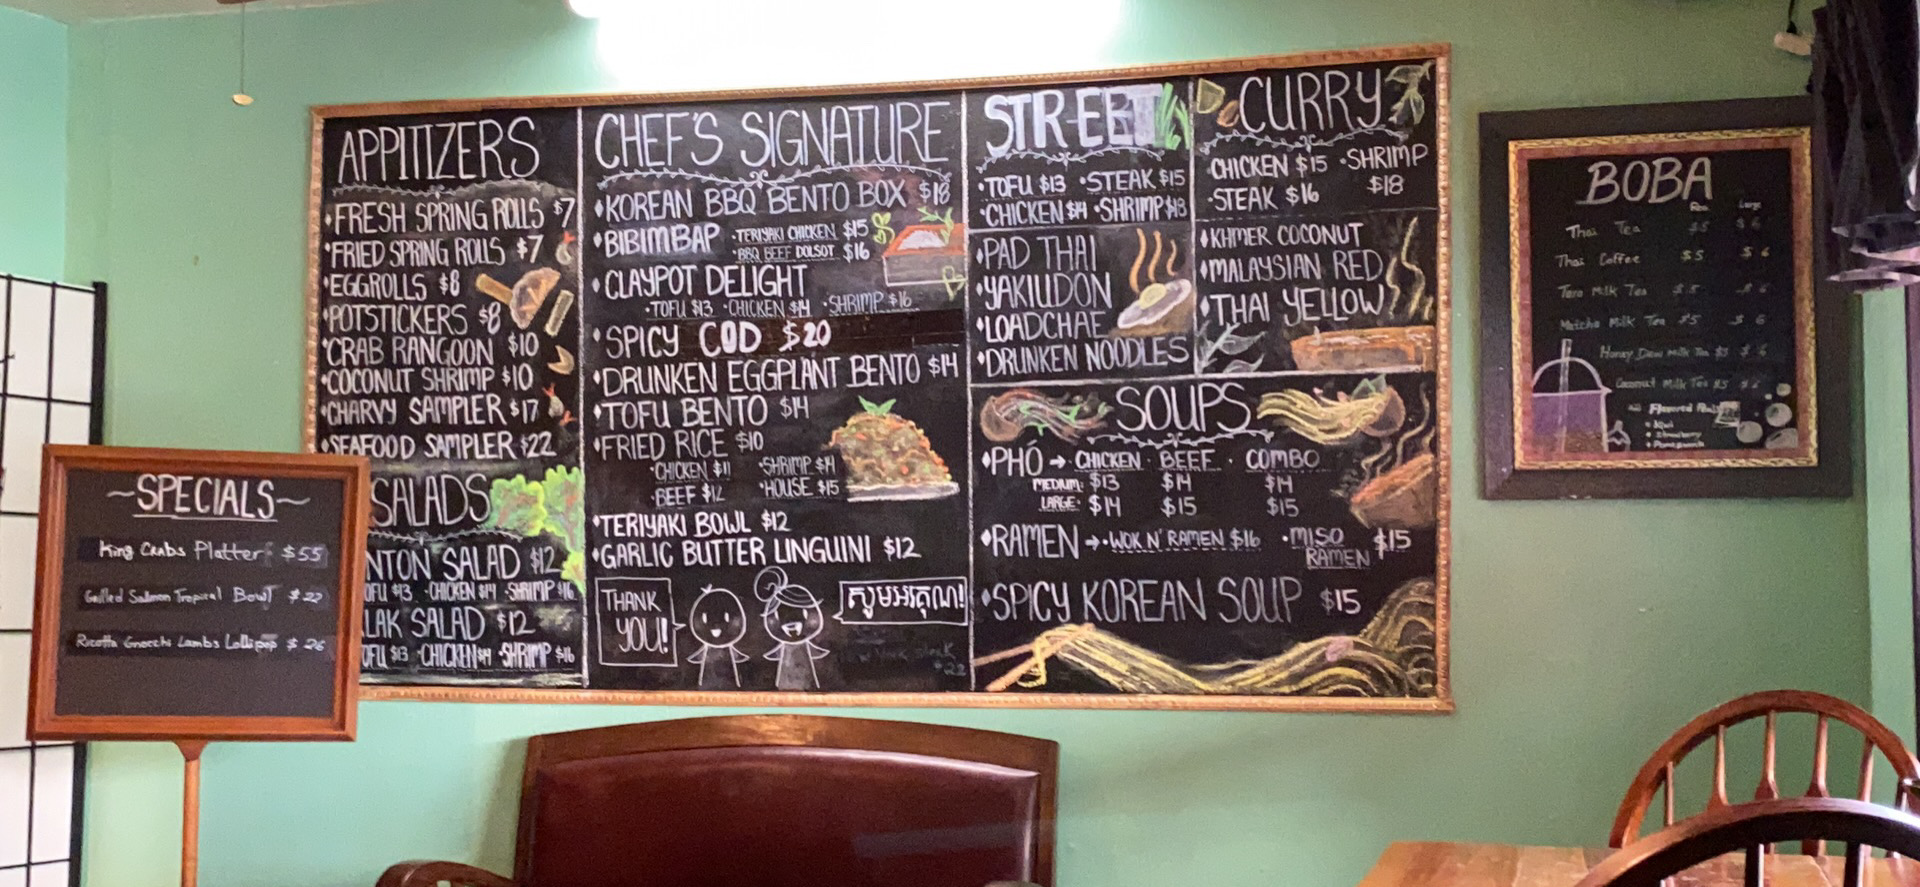 APPITIZERS
FRESH SPRING ROLLS $7
FRIED SPRING ROLLS $7
EGGROLLS $8
POTSTICKERS $8
CRAB RANGOON $10
COCONUT SHRIMP $10
CHARVY SAMPLER $17
SEAFOOD SAMPLER $22
SALADS
NTON SALAD $12
OFU $13 · CHICKEN $14 · SHRIMP $16
LAK SALAD $12
OFU $13 · CHICKEN $14 · SHRIMP $16
~SPECIALS~
King Crabs Platter $55
Grilled Salmon Tropical Bowl $22
Ricotta Gnocchi Lambs Lollipop $26
CHEF'S SIGNATURE
KOREAN BBQ BENTO BOX $18
BIBIMBAP · TERIYAKI CHICKEN $15
· BBQ BEEF DOLSOT $16
CLAYPOT DELIGHT
· TOFU $13 · CHICKEN $14 · SHRIMP $16
SPICY COD $20
DRUNKEN EGGPLANT BENTO $14
TOFU BENTO $14
FRIED RICE $10
· CHICKEN $11 · SHRIMP $14
· BEEF $12 · HOUSE $15
TERIYAKI BOWL $12
GARLIC BUTTER LINGUINI $12
THANK
YOU!
សូមអរគុណ!
$22
STREET
· TOFU $13 · STEAK $15
· CHICKEN $14 · SHRIMP $18
PAD THAI
YAKIUDON
LOADCHAE
DRUNKEN NOODLES
CURRY
CHICKEN $15 · SHRIMP
· STEAK $16 $18
KHMER COCONUT
MALAYSIAN RED
THAI YELLOW
SOUPS
PHÓ → CHICKEN · BEEF · COMBO
MEDIUM: $13 $14 $14
LARGE: $14 $15 $15
RAMEN → · WOK N' RAMEN $16 · MISO $15
RAMEN
SPICY KOREAN SOUP $15
BOBA
Reg. Large
Thai Tea $5 $6
Thai Coffee $5 $6
Taro Milk Tea $5 $6
Matcha Milk Tea $5 $6
Honey Dew Milk Tea $5 $6
Coconut Milk Tea $5 $6
Flavored
Kiwi
Strawberry
Pomegranate